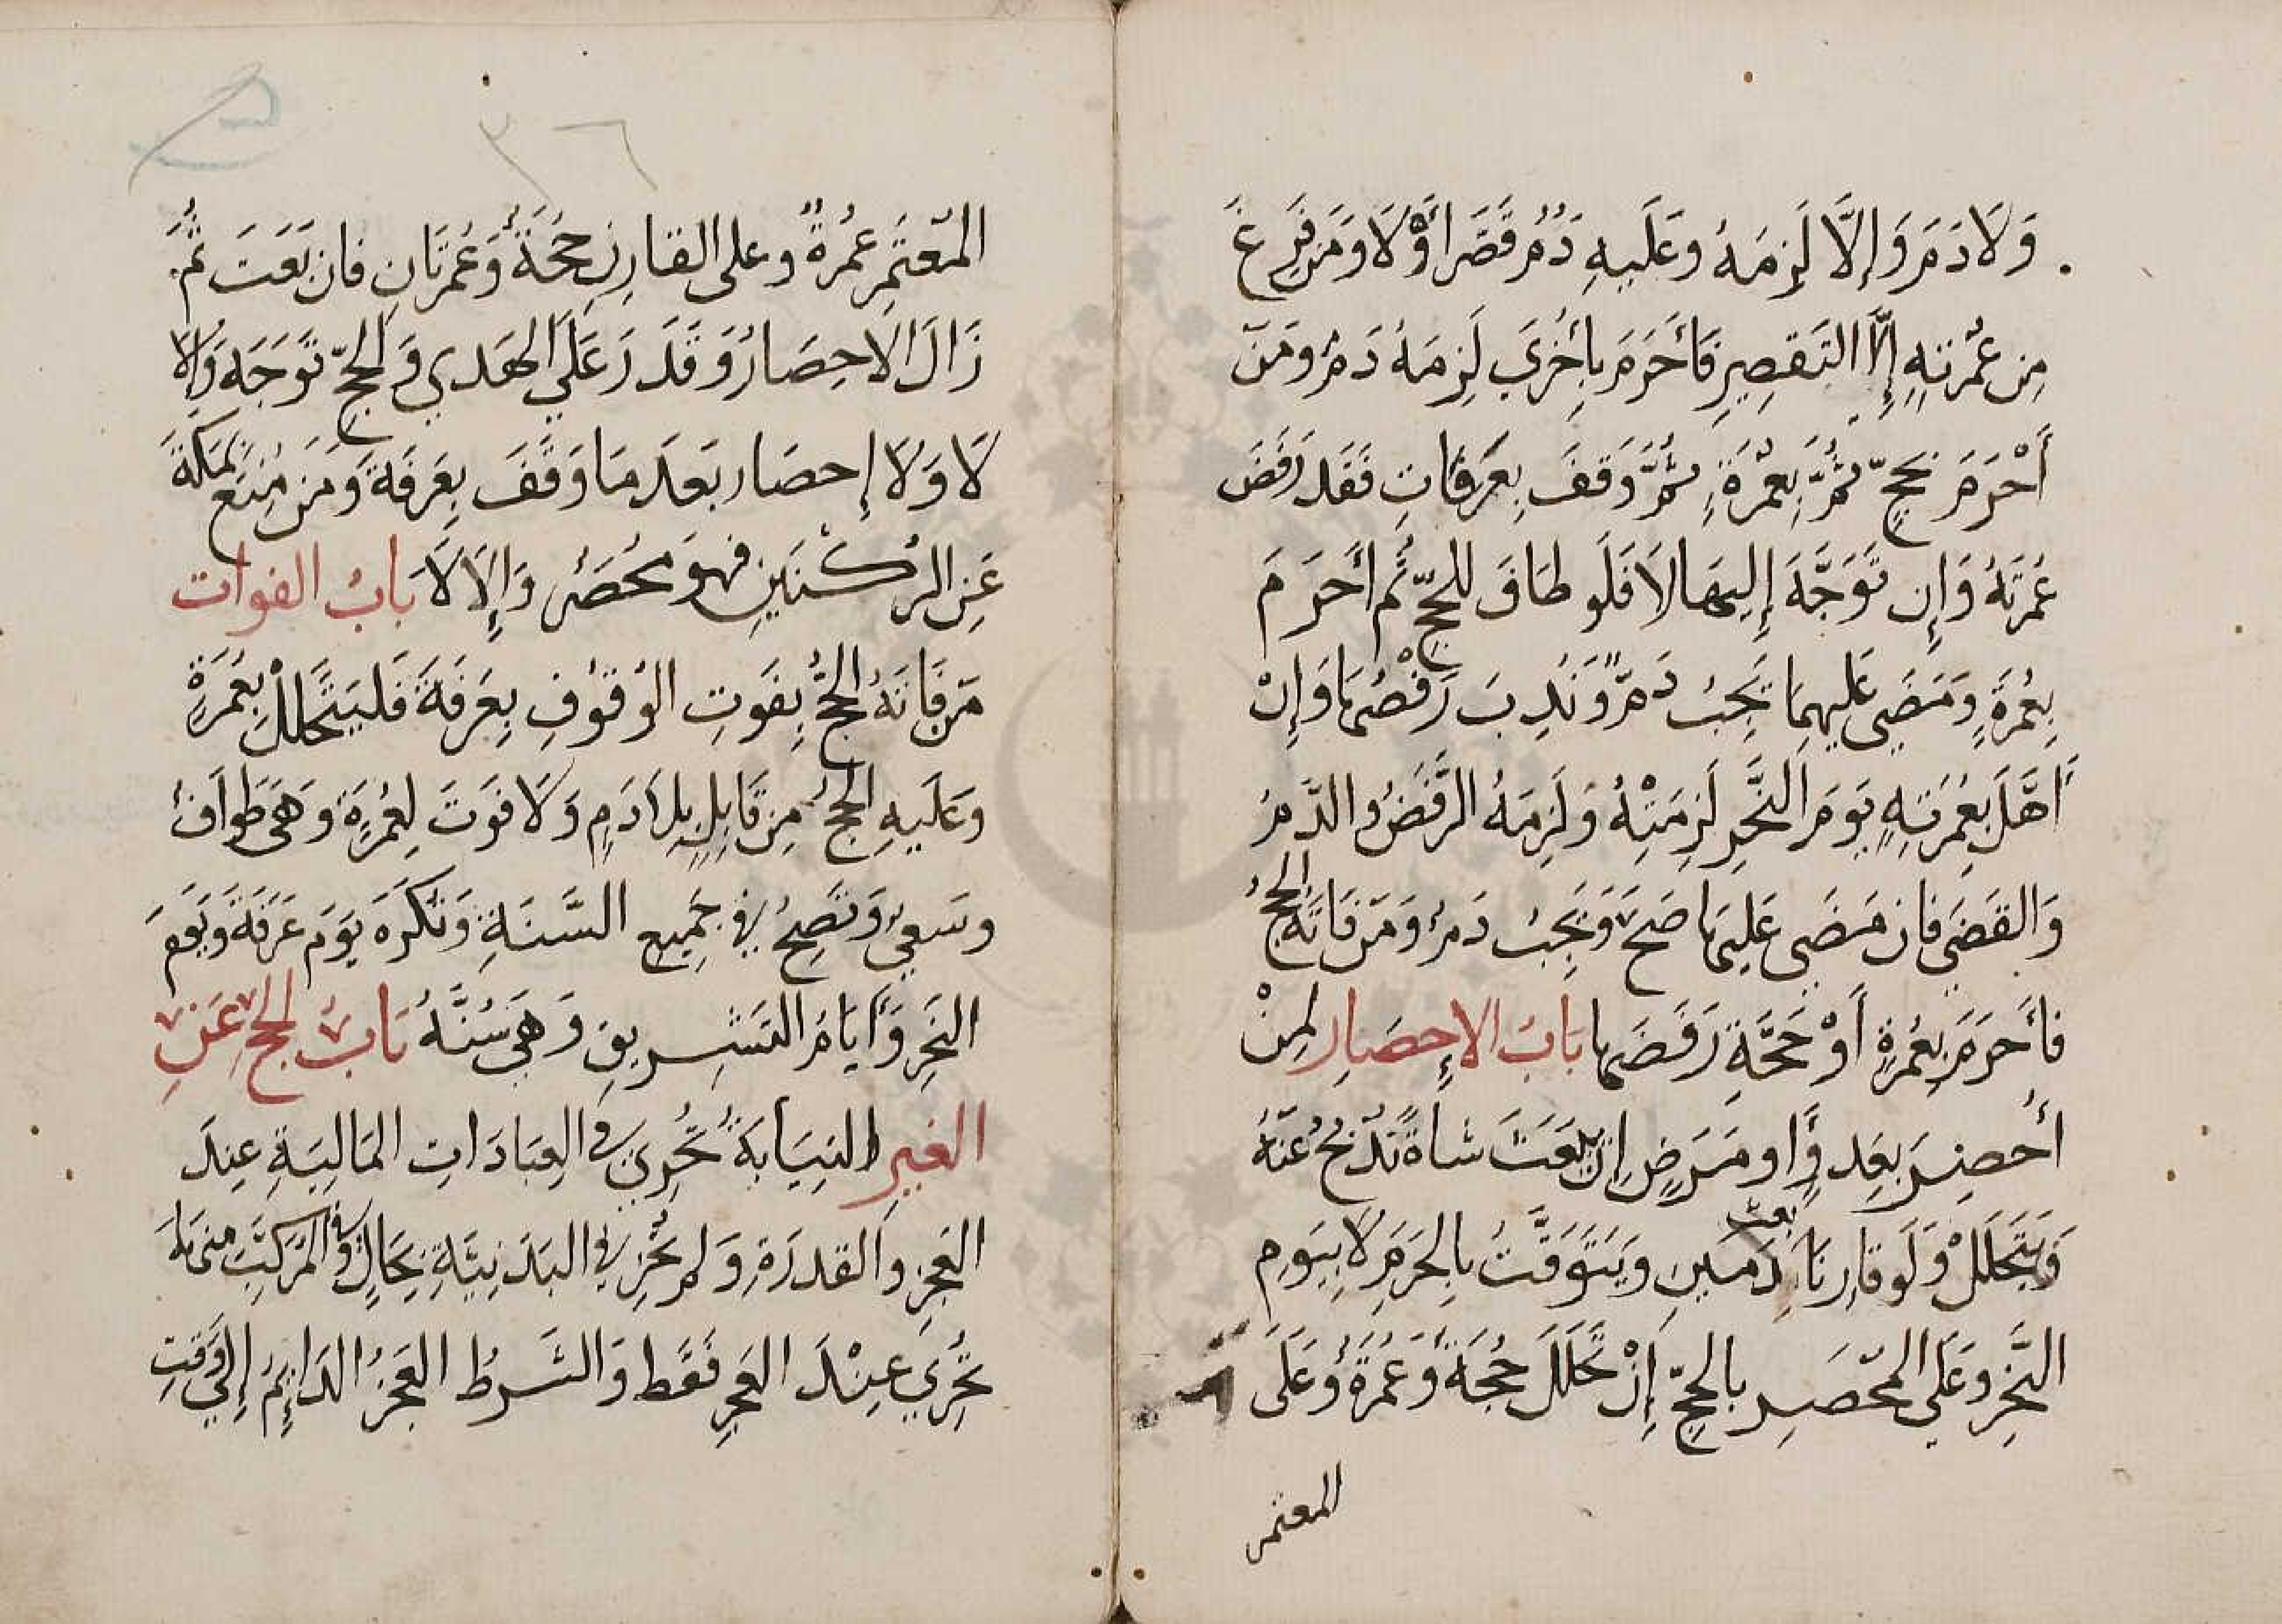 وَلَا دَمَ وَإِلَّا لَزِمَهُ وَعَلَيهِ دَمٌ قَصَّرَ أَوْ لَا وَمَن فَرِغَ
مِن عُمْرَتِهِ إِلَّا التَقصِيرِ فَأَحرَمَ بِأُخرَى لَزِمَهُ دَمٌ وَمَن
أَحْرَمَ بِحَجٍّ ثُمَّ بِعُمْرَةٍ ثُمَّ وَقَفَ بِعَرَفَاتٍ فَقَد رَفَضَ
عُمرَتَهُ وَإِن تَوَجَّهَ إِلَيهَا لَا فَلَو طَافَ لِلحَجِّ ثُم أَحرَمَ
بِعُمرَةٍ وَمَضَى عَلَيهِمَا يَجِبُ دَمٌ وَنُدِبَ رَفْضُهَا وَإِنْ
أَهَلَّ بِعُمرَتِهِ يَومَ النَّحرِ لَزِمَتْهُ وَلَزِمَهُ الرَّفضُ وَالدَّمُ
وَالقَضَى فَان مَضَى عَلَيهَا صَحَّ وَيَجِبُ دَمٌ وَمَن فَاتَهُ الحَجُّ
فَأَحرَمَ بِعُمرَةٍ أَوْ حَجَّةٍ رَفَضَهَا بَابُ الإِحصَارِ لِمِنْ
أُحصِرَ بِعَدوٍّ او مَرَضٍ اِن يَبعَثَ شَاةً تُذبَحُ عَنهُ
وَيَتَحَلَّلْ وَلَو قَارِنًا بعث دَمَينِ وَيَتَوَقَّتُ بِالحَرَمِ لَا بِيَومِ
النَّحرِ وَعَلَى المُحْصَرِ بِالحَجِّ إِنْ تَحَلَّلَ حَجَّةٌ وَعُمرَةٌ وَعَلَى
المعتمر
المُعتَمِرِ عُمرَةٌ وعلى القارِنِ حَجَّةٌ وَعُمرَتَانِ فان بَعَثَ ثُمَّ
زَالَ الاحصَارُ وَقَدَرَ عَلَى الهَديِ وَالحَجِّ تَوَجَّهَ وَإِلَّا
لَا وَلَا إِحصَار بَعدَ مَا وَقَفَ بِعَرَفَةَ وَمَن مُنِعَ بِمَكَّةَ
عَنِ الرُكْنَينِ فهو مُحصَرٌ وَإِلَّا لَا بَابُ الفوات
مَن فَاتَهُ الحَجُّ بِفَوتِ الوُقوُفِ بِعَرَفَةَ فَليَتَحَلَّلْ بِعُمرَةٍ
وَعَلَيهِ الحَجُّ مِن قَابِلٍ بِلَا دَمٍ وَلَا فَوتَ لِعُمرَةٍ وَهَى طَوافٌ
وسَعيٌ وَتَصِحُّ فِي جَمِيعِ السَّنَةِ وَتُكرَهُ يَومَ عَرَفَةَ وَيَومَ
النَحرِ وَأَيَامُ التَشرِيقِ وَهِيَ سُنَّةٌ بَابُ الحَجِّ عَنِ
الغيرِ النِيَابَةُ تَجرِي في العِبَادَاتِ المَالِيَةِ عِندَ
العَجزِ وَالقدرَةِ وَلم تَجُز فِي البَدَنِيَّةِ بِحَالٍ وَفي المُرَكَّبِ مِنهُمَا
تَجْرِي عِنْدَ العَجزِ فَقَط وَالشَرطُ العَجزُ الدَائِمُ إِلَى وَقتِ